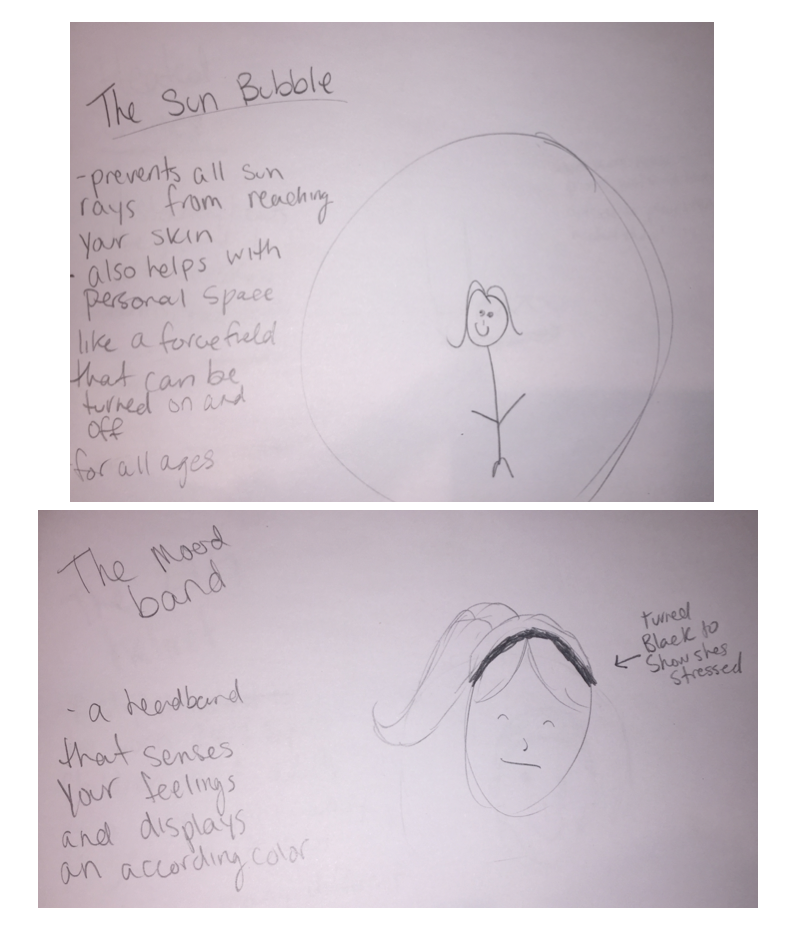 The Sun Bubble
-prevents all sun
rays from reaching
your skin
· also helps with
personal space
like a forcefield
that can be
turned on and
off
for all ages
The Mood
band
- a headband
that senses
your feelings
and displays
an according color
turned
Black to
Show shes
stressed